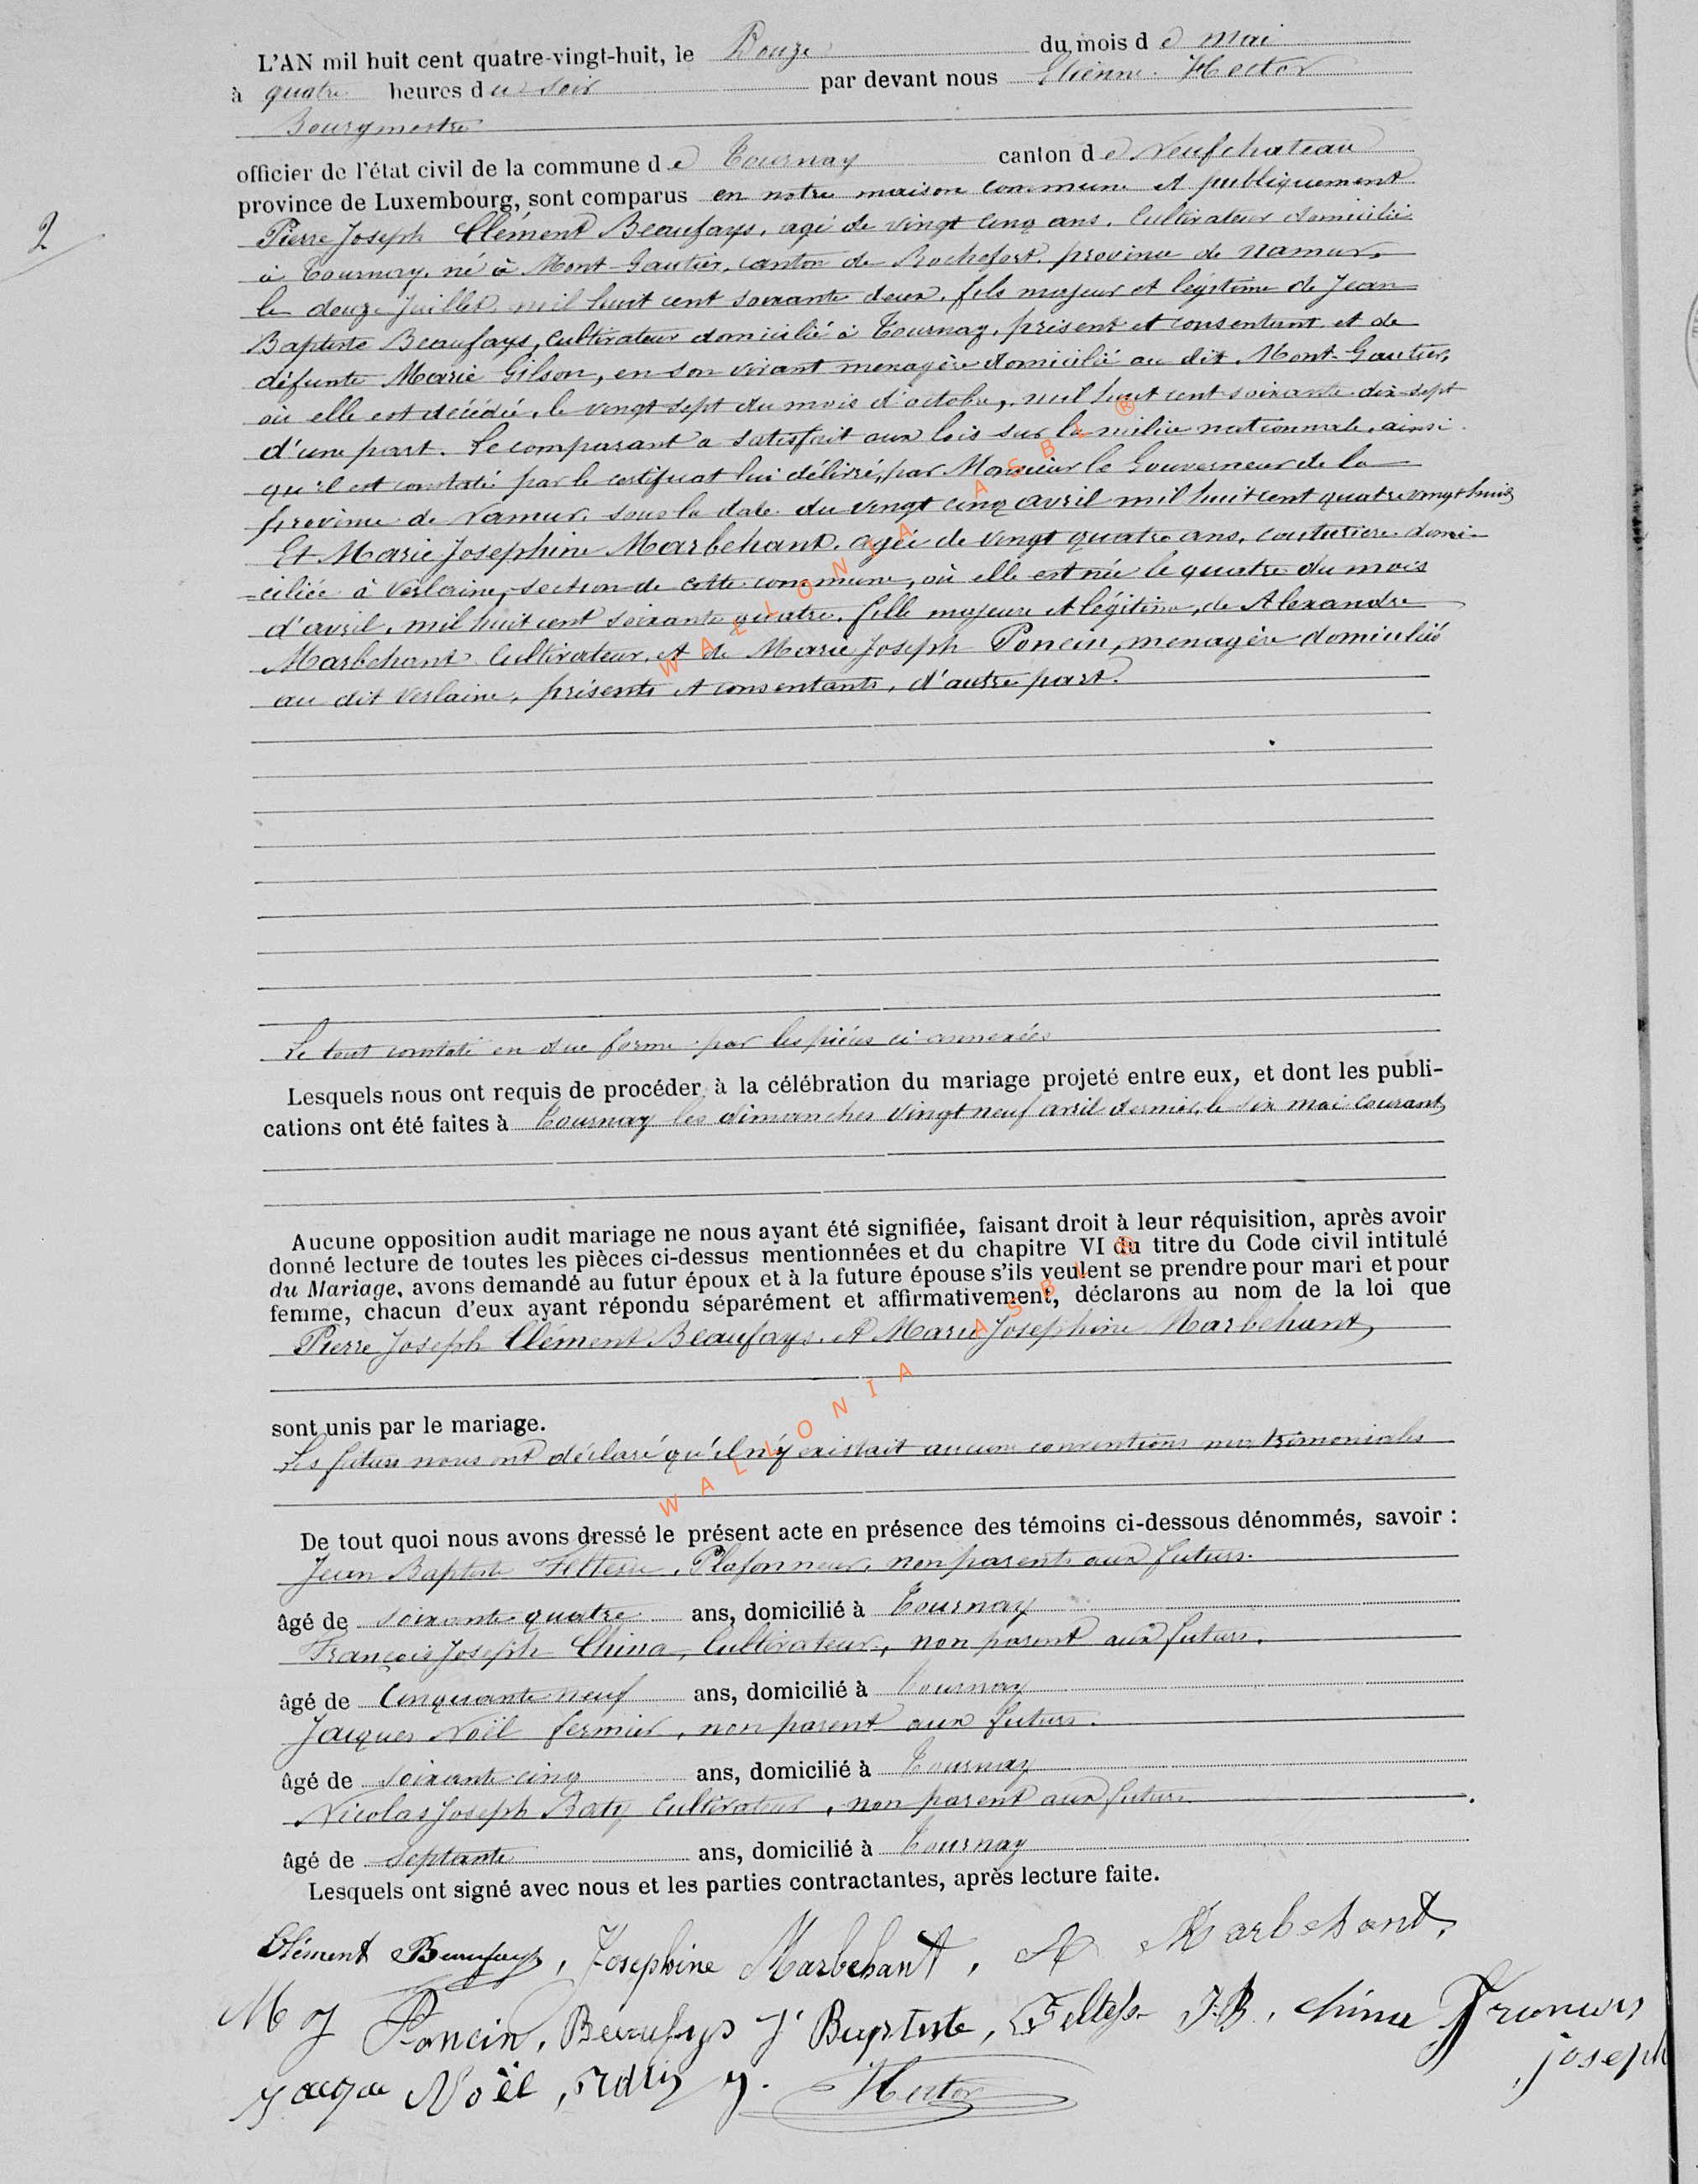 L'AN mil huit cent quatre-vingt-huit, le Douze du mois d e mai
à quatre heures d u soir par devant nous Etienne Hector
Bourgmestre
officier de l'état civil de la commune d e Tournay canton d e Neufchateau
province de Luxembourg, sont comparus en notre maison commune et publiquement
2
Pierre Joseph Clément Beaufays, agé de vingt cinq ans, Cultivateur domicilié
à Tournay, né à Mont-Gautier, canton de Rochefort, province de Namur,
le douze Juillet mil huit cent soixante deux, fils majeur et légitime de Jean
Baptiste Beaufays, Cultivateur domicilié à Tournay, présent et consentant et de
défunte Marie Gilson, en son vivant menagère domicilié au dit Mont-Gautier,
où elle est décédée, le vingt sept du mois d'octobre, mil huit cent soixante dix-sept
d'une part. Le comparant a satisfait aux lois sur la milice nationale, ainsi
qu'il est constaté par le certificat lui délivré, par Monsieur le Gouverneur de la
province de Namur, sous la date du vingt cinq avril mil huit cent quatre vingt huit
Et Marie Josephine Marbehant, agée de vingt quatre ans, couturiere domi-
-ciliée à Verlaine, section de cette commune, où elle est née le quatre du mois
d'avril, mil huit cent soixante quatre, fille majeure et légitime, de Alexandre
Marbehant Cultivateur, et de Marie Joseph Poncin, menagère domiciliés
au dit Verlaine, présents et consentants, d'autre part.
WALLONIA ASBL ®
Le tout constaté en due forme par les pièces ci annexées
Lesquels nous ont requis de procéder à la célébration du mariage projeté entre eux, et dont les publi-
cations ont été faites à Tournay les dimanches vingt neuf avril dernier, le six mai courant,
Aucune opposition audit mariage ne nous ayant été signifiée, faisant droit à leur réquisition, après avoir
donné lecture de toutes les pièces ci-dessus mentionnées et du chapitre VI du titre du Code civil intitulé
du Mariage, avons demandé au futur époux et à la future épouse s'ils veulent se prendre pour mari et pour
femme, chacun d'eux ayant répondu séparément et affirmativement, déclarons au nom de la loi que
Pierre Joseph Clément Beaufays, et Marie Josephine Marbehant,
sont unis par le mariage.
Les futurs nous ont déclaré qu'il n'y existait aucune conventions matrimoniales
WALLONIA ASBL ®
De tout quoi nous avons dressé le présent acte en présence des témoins ci-dessous dénommés, savoir :
Jean Baptiste Plafonneur, non parents aux futurs.
âgé de soixante quatre ans, domicilié à Tournay
François Joseph China, Cultivateur, non parent aux futurs.
âgé de Cinquante neuf ans, domicilié à Tournay
Jacques Noël fermier, non parent aux futurs.
âgé de soixante cinq ans, domicilié à Tournay
Nicolas Joseph Raty Cultivateur, non parent aux futurs
âgé de septante ans, domicilié à Tournay
Lesquels ont signé avec nous et les parties contractantes, après lecture faite.
Clément Beaufays, Josephine Marbehant, A Marbehant,
M J Poncin, Beaufays J Baptiste, J.B. China François
joseph
Noël, Hector